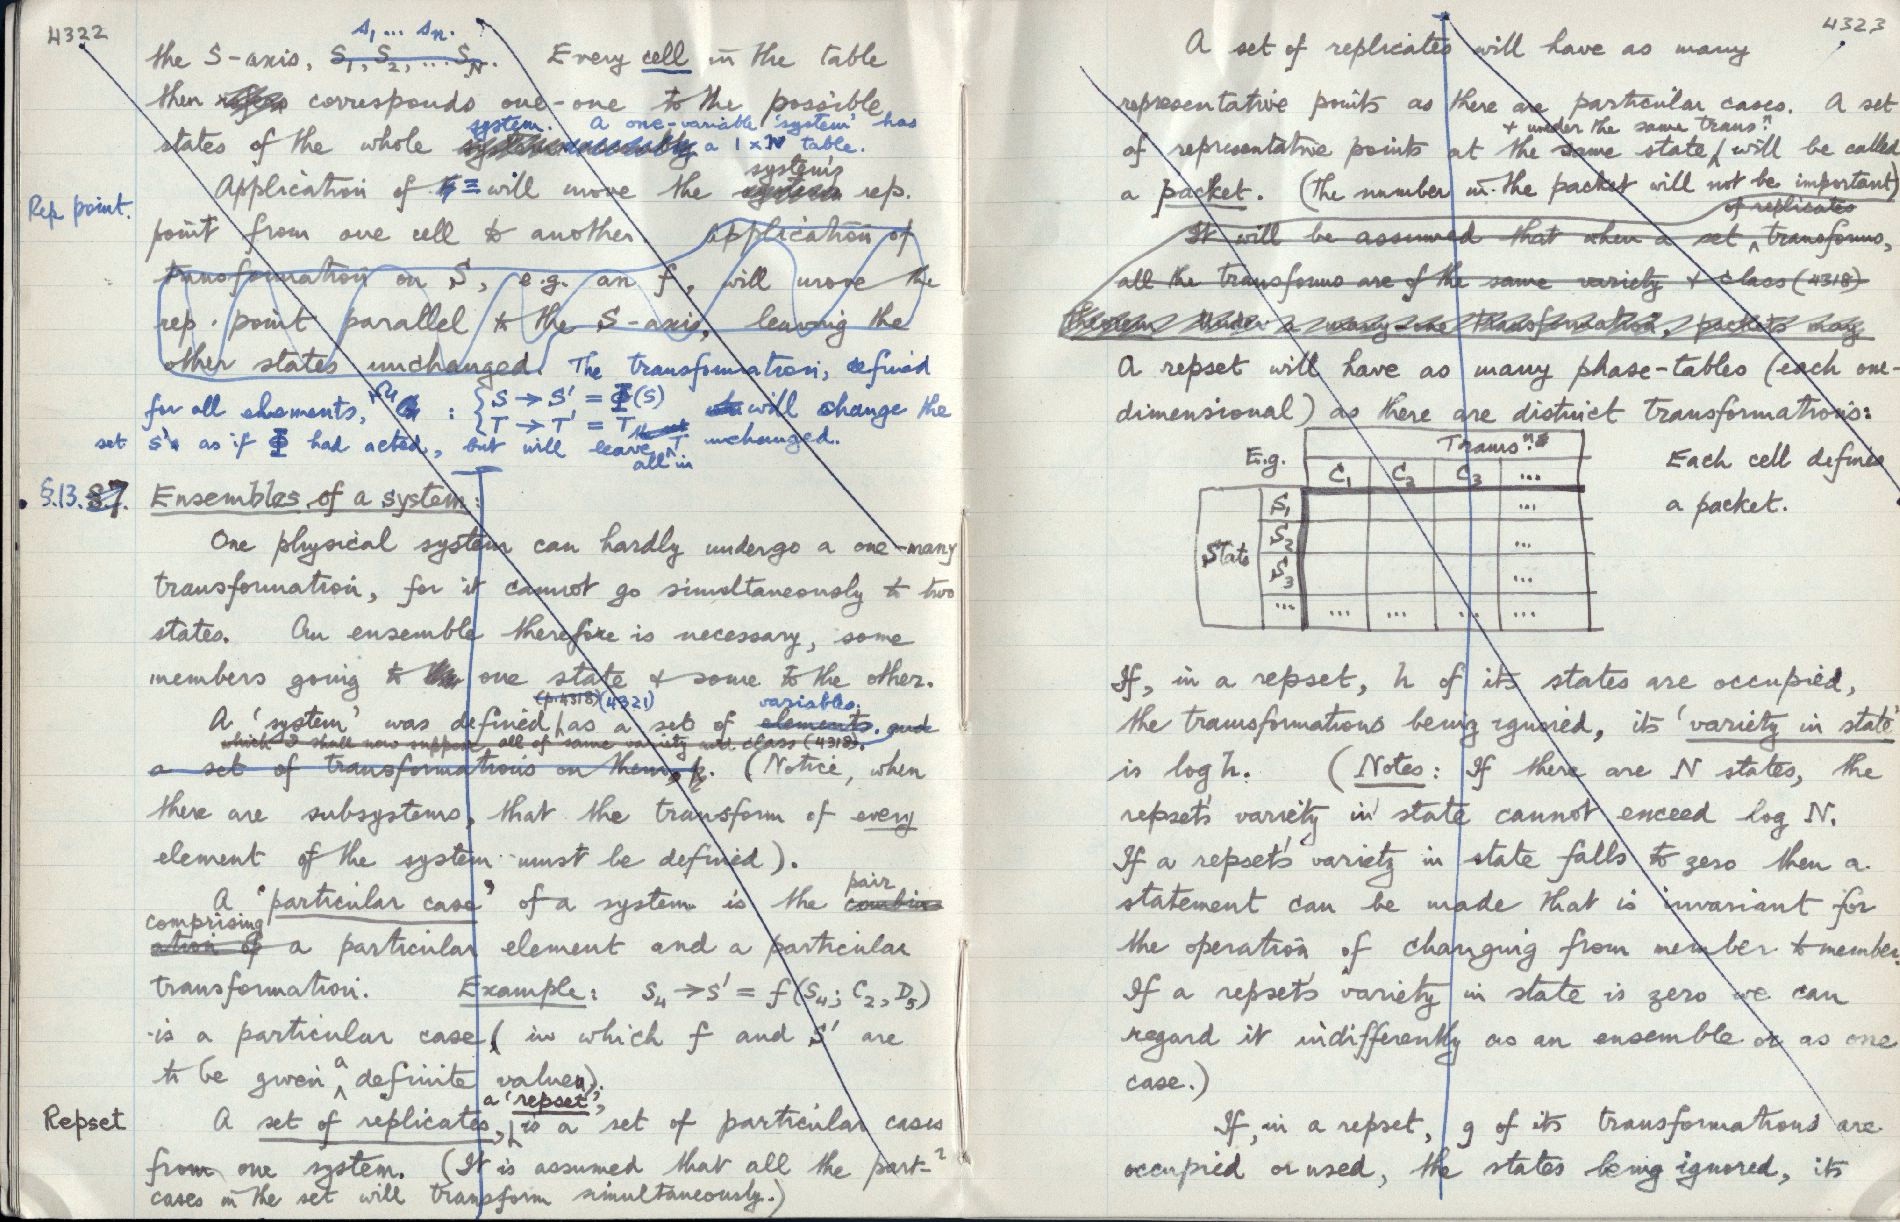 4322
s₁ ... sₙ.
the S-axis, S₁, S₂, ... S_N. Every cell in the table
then corresponds one-one to the possible
states of the whole system. A one-variable 'system' has
a 1 x N table.
Application of ≡ will move the system's rep.
Rep point.
point from one cell to another. Application of
transformation on S, e.g. an f, will move the
rep. point parallel to the S-axis, leaving the
other states unchanged. The transformation, defined
for all elements, : { S → S' = Φ(S)
T → T' = T will change the
set S's as if Φ had acted, but will leave all in T unchanged.
§.13. S7. Ensembles of a system:
One physical system can hardly undergo a one-many
transformation, for it cannot go simultaneously to two
states. An ensemble therefore is necessary, some
members going to one state & some to the other.
(p.4318) (4321) variables.
A 'system' was defined as a set of elements, and
which I shall now suppose all of same variety and class (4318).
a set of transformations on them. (Notice, when
there are subsystems, that the transform of every
element of the system must be defined).
A 'particular case' of a system is the pair combin-
comprising ation of a particular element and a particular
transformation. Example: S₄ → S' = f(S₄; C₂, D₅)
is a particular case (in which f and S' are
to be given a definite value).
Repset
A set of replicates, a 'repset', is a set of particular cases
from one system. (It is assumed that all the part-
cases in the set will transform simultaneously.)
4323
A set of replicates will have as many
representative points as there are particular cases. A set
+ under the same transⁿ.
of representative points at the same state, will be called
a packet. (The number in the packet will not be important)
of replicates
It will be assumed that when a set transforms,
all the transforms are of the same variety & class (4318)
Theorem Under a many-one transformation, packets may
A repset will have as many phase-tables (each one-
dimensional) as there are distinct transformations:
E.g. Transⁿ.s
C₁ C₂ C₃ ...
Each cell defines
a packet.
State
S₁ ...
S₂ ...
S₃ ...
... ... ... ... ...
If, in a repset, h of its states are occupied,
the transformations being ignored, its 'variety in state'
is log h. (Notes: If there are N states, the
repset's variety in state cannot exceed log N.
If a repset's variety in state falls to zero then a
statement can be made that is invariant for
the operation of changing from member to member.
If a repset's variety in state is zero we can
regard it indifferently as an ensemble or as one
case.)
If, in a repset, g of its transformations are
occupied or used, the states being ignored, its